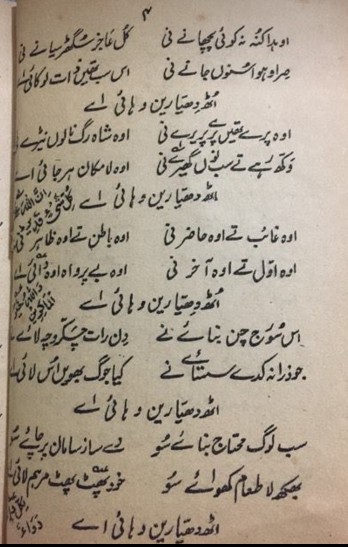 ۴
اوہدا کنہ نہ کوئی پچھانے نی کل عاجز سگھڑ سیانے نی
مراوہو اسنوں جانے نی اس سب یقین ذات لوکائی اے
اٹھ دھیا رین وہائی اے
اوہ پرے یقیں پرے پریرے نی اوہ شاہ رگ نالوں نیڑے نی
وکھ رہے تے سب نوں گھیرے نی اوہ لامکان ہر جائی اے
اٹھ دھیا رین وہائی اے
اوہ غائب تے اوہ حاضر نی اوہ باطن تے اوہ ظاہر نی
اوہ اول تے اوہ آخر نی اوہ بے پرواہ اوہ دائی اے
اٹھ دھیا رین وہائی اے
اس سورج چن بنائے نے دن رات چکر وچہ لائے
جو ذرا نہ کدے سستائے نے کیا جوگ بھویں اس لائی
اٹھ دھیا رین وہائی اے
سب لوگ محتاج بنائے سو دے ساز سامان پرچائے سو
بھکھ لا طعام کھوائے سو خود پھٹ پھٹ مرہم لائی
اٹھ دھیا رین وہائی اے